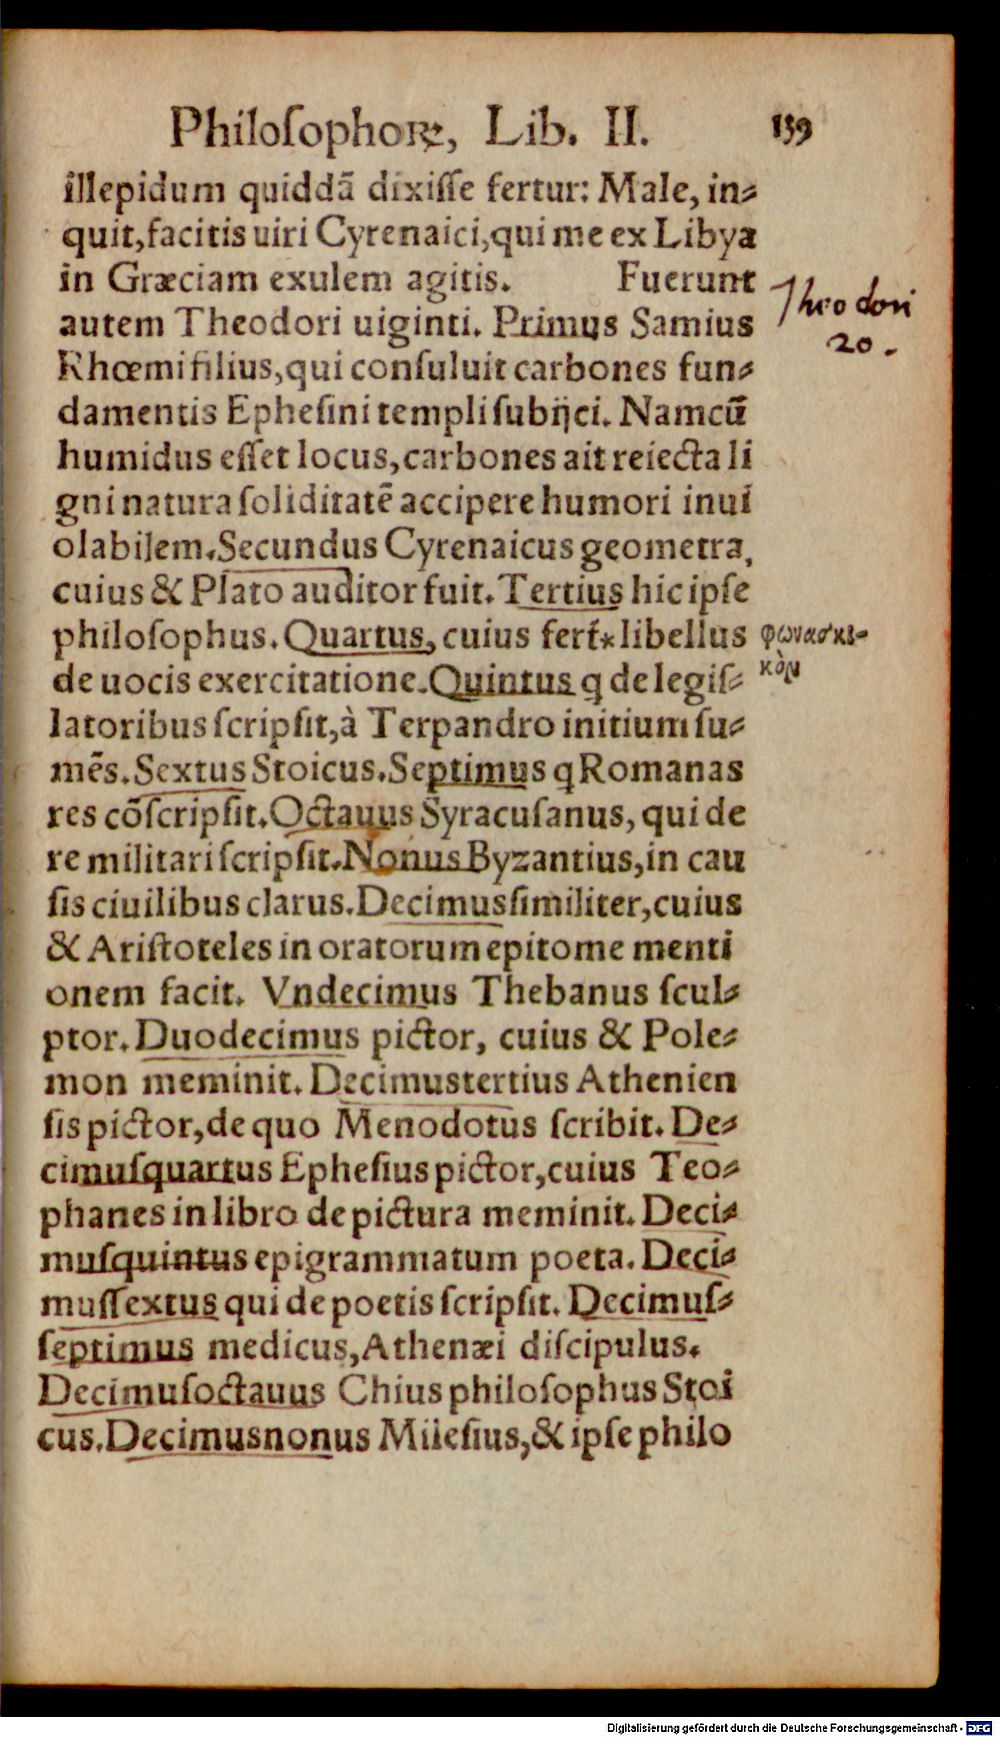 Philosophoꝝ, Lib. II. 139
illepidum quiddã dixiſſe fertur: Male, in⸗
quit, facitis uiri Cyrenaici, qui me ex Libya
in Græciam exulem agitis. Fuerunt
autem Theodori uiginti. Primus Samius
Theodori
20.
Rhœmi filius, qui conſuluit carbones fun⸗
damentis Epheſini templi ſubijci. Nam cũ
humidus eſſet locus, carbones ait reiecta li
gni natura ſoliditatẽ accipere humori inui
olabilem. Secundus Cyrenaicus geometra,
cuius & Plato auditor fuit. Tertius hic ipſe
philoſophus. Quartus, cuius fert* libellus
φωνασκι-
κὸν
de uocis exercitatione. Quintus q de legiſ⸗
latoribus ſcripſit, à Terpandro initium ſu⸗
mẽs. Sextus Stoicus. Septimus q Romanas
res cõſcripſit. Octauus Syracuſanus, qui de
re militari ſcripſit. Nonus Byzantius, in cau
ſis ciuilibus clarus. Decimus ſimiliter, cuius
& Ariſtoteles in oratorum epitome menti
onem facit. Vndecimus Thebanus ſcul⸗
ptor. Duodecimus pictor, cuius & Pole⸗
mon meminit. Decimustertius Athenien
ſis pictor, de quo Menodotus ſcribit. De⸗
cimuſquartus Epheſius pictor, cuius Teo⸗
phanes in libro de pictura meminit. Deci⸗
muſquintus epigrammatum poeta. Deci⸗
muſſextus qui de poetis ſcripſit. Decimuſ⸗
ſeptimus medicus, Athenæi diſcipulus.
Decimuſoctauus Chius philoſophus Stoi
cus. Decimusnonus Mileſius, & ipſe philo
Digitalisierung gefördert durch die Deutsche Forschungsgemeinschaft - DFG